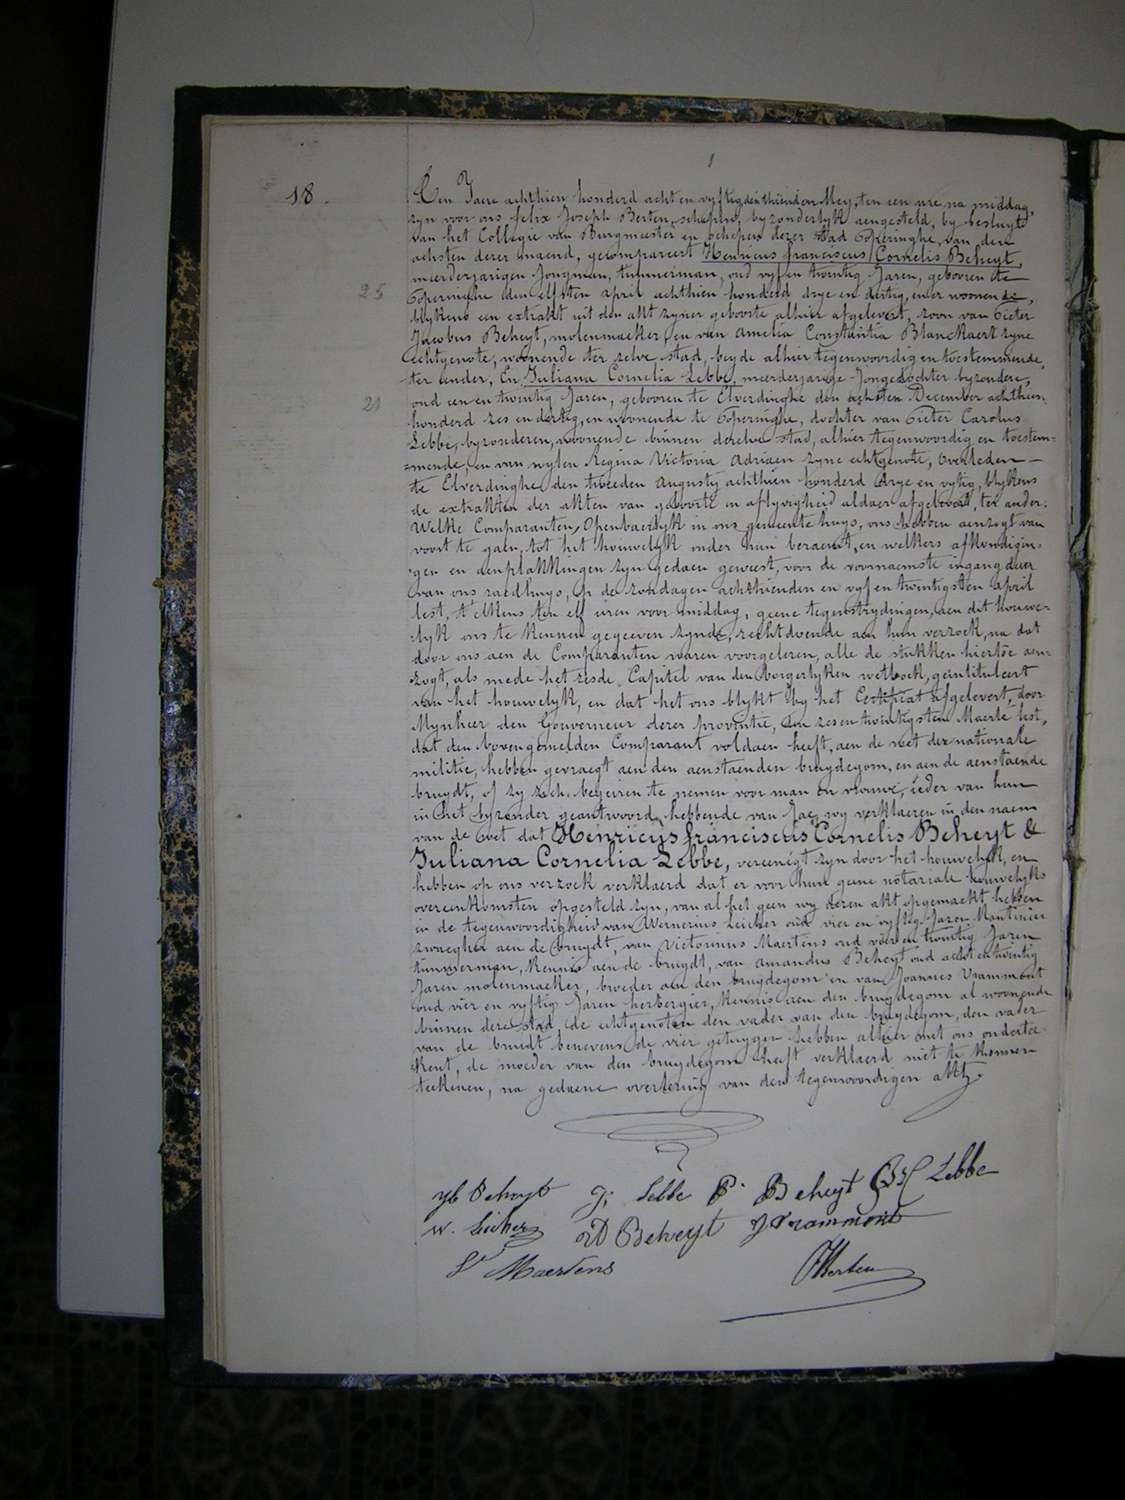 1
18.
Den Jaere achthien honderd acht en vyftig den thienden Mey, ten een ure na middag,
zyn voor ons felix Joseph Berten, schepen, byzonderlyk aengesteld, by besluyt
van het Collegie van Burgmeester en Schepen dezer stad Poperinghe, van den
achsten dezer maend, gecompareert Henricus franciscus Cornelis Beheyt,
meerderjarigen Jongman, timmerman, oud vyf en twintig Jaren, gebooren te
25
Poperinghe den elfsten april achthien honderd drye en dertig, en er woonende,
blykens een extrakt uit den akt zyner geboorte alhier afgelevert, zoon van Pieter
Jacobus Beheyt, molenmaeker, en van Amelia Constantia Blanckaert zyne
echtgenote, woonende ter zelve stad, beyde alhier tegenwoordig en toestemmende,
ter eender, En Juliana Cornelia Lebbe, meerderjarige Jongedochter byzondere,
21
oud een en twintig Jaren, gebooren te Elverdinghe den achsten December achthien
honderd zes en dertig, en woonende te Poperinghe, dochter van Pieter Carolus
Lebbe, byzonderen, woonende binnen dezelve stad, alhier tegenwoordig en toestem=
=mende, en van wylen Regina Victoria Adriaen zyne echtgenote, overleden
te Elverdinghe den tweeden Augusty achthien honderd drye en vyftig, blykens
de extrakten der akten van geboorte en aflyvigheid aldaer afgelevert, ter ander.
Welke Comparanten, Openbaerlyk in ons gemeente huys, ons hebben aenzogt van
voort te gaen, tot het houwelyk onder hun beraemt, en welkers afkondigin=
gen en aenplakkingen zyn gedaen geweest, voor de voornaemste ingang deur
van ons raedhuys, op de zondagen achthienden en vyf en twintigsten april
lest, t'elkens ten elf uren voor middag, geene tegenstrydingen, aen dit houwe=
lyk ons te kennen gegeeven zynde, rechtdoende aen hun verzoek, na dat
door ons aen de Comparanten waren voorgelezen, alle de stukken hiertoe aen=
zogt, als mede het zesde Capitel van den borgerlyken wetboek, geintituleert
van het houwelyk, en dat het ons blykt by het Certificat afgelevert, door
Mynheer den Gouverneur dezer provintie, den zes en twintigsten Maerte lest,
dat den bovengemelden Comparant voldaen heeft, aen de wet der nationale
militie, hebben gevraegt aen den aenstaenden bruydegom, en aen de aenstaende
bruydt, of zy zich begeiren te nemen voor man en vrouwe, ieder van hun
in het byzonder geantwoord hebbende van Jae, wy verklaeren in den naem
van de wet dat Henricus franciscus Cornelis Beheyt &
Juliana Cornelia Lebbe, vereenigt zyn door het houwelyk, en
hebben op ons verzoek verklaerd dat er voor hun geene notariale houwelyks
overeenkomsten opgesteld zyn, van al het geen wy dezen akt opgemackt hebben
in de tegenwoordigheid van Wernerius Leicher oud vier en vyftig Jaren
zwaegher aen de bruydt, van Victorinus Maertens oud vier en twintig Jaren
timmerman, kennis aen de bruydt, van Amandus Beheyt oud acht en twintig
Jaren molenmaeker, broeder aen den bruydegom en van Joannes Vrammont
oud vier en vyftig Jaren herbergier, kennis aen den bruydegom al woonende
binnen deze stad, de echtgenoten den vader van den bruydegom, den vader
van de bruidt benevens de vier getuygen hebben alhier met ons onderte=
kent, de moeder van den bruydegom heeft verklaerd niet te konnen
teekenen, na gedaene overlezing van den tegenwoordigen akt.
Beheyt J: Lebbe P. Beheyt Lebbe
W. Leicher Beheyt J Vrammont
V Maertens Berten